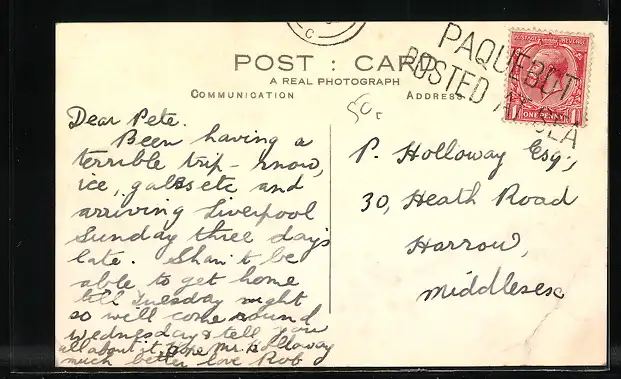 C
POST : CARD
A REAL PHOTOGRAPH
COMMUNICATION
ADDRESS
PAQUEBOT
POSTED AT SEA
POSTAGE REVENUE
1 ONE PENNY 1
50c
Dear Pete.
Been having a
terrible trip - snow,
ice, gales etc and
arriving Liverpool
Sunday three days
late. Shan't be
able to get home
till Tuesday night
so will come round
Wednesday & tell you
all about it. Hope Mr. Holloway
much better love Rob
P. Holloway Esq.,
30, Heath Road
Harrow,
Middlesex